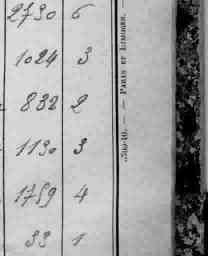 2730 6
1024 3
832 2
1130 3
1759 4
33 1
PARIS ET LIMOGES.